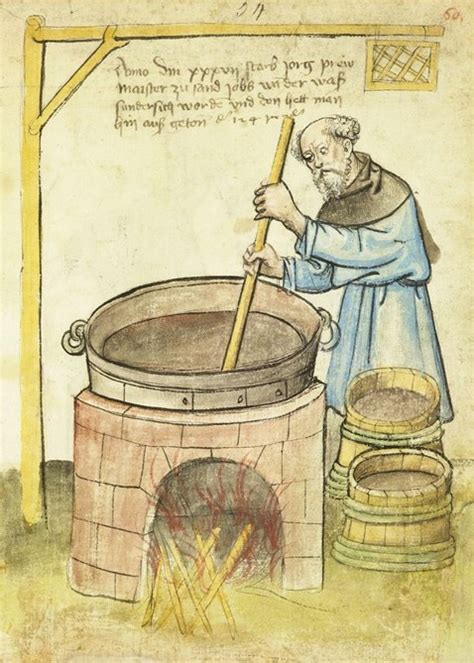 60.
Anno dm xxxvij starb jorg prew
maister zu sand jobs wan der was
sundersich worde vnd den hett man
hin aus geton